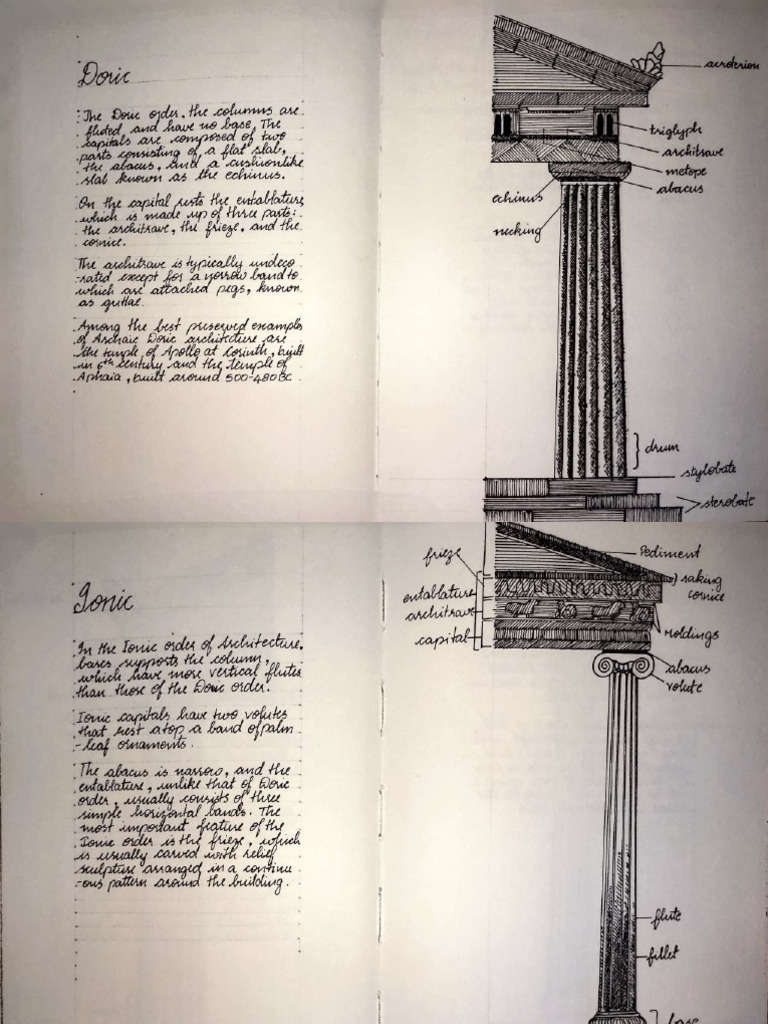 Doric
The Doric order, the columns are
fluted and have no base. The
capitals are composed of two
parts consisting of a flat slab,
the abacus, and a cushionlike
slab known as the echinus.
On the capital rests the entablature
which is made up of three parts:
the architrave, the frieze, and the
cornice.
The architrave is typically undeco
-rated except for a narrow band to
which are attached pegs, known
as guttae.
Among the best preserved examples
of Archaic Doric architecture are
the temple of Apollo at Corinth, built
in 6th century and the temple of
Aphaia, built around 500-480BC
acroterion
triglyph
architrave
metope
abacus
echinus
necking
drum
stylobate
sterobate
Ionic
In the Ionic order of Architecture,
bases supports the column,
which have more vertical flutes
than those of the Doric order.
Ionic capitals have two volutes
that rest atop a band of palm
-leaf ornaments.
The abacus is narrow, and the
entablature, unlike that of Doric
order, usually consists of three
simple horizontal bands. The
most important feature of the
Ionic order is the frieze, which
is usually carved with relief
sculpture arranged in a continu
-ous pattern around the building.
frieze
Pediment
entablature
raking
cornice
architrave
moldings
capital
abacus
volute
flute
fillet
base